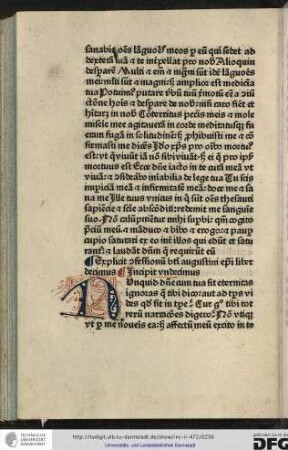 sanabit oẽs lãguoẽs meos ꝑ eũ qui sedet ad
dexterã tuã ⁊ te inťpellat pro nob̃ Alioquin
desparẽ Multi ⁊ em̃ ⁊ mg̃ni sũt idẽ lãguoẽs
mei: ml̃ti sũt ⁊ magni: sꝫ amplior est medicĩa
tua Potuim⁹ putare ỽbũ tuũ
ctõne hoĩs ⁊ desꝑare de nob̃: nisi caro fiet et
hĩtaret in nob̃ Cõterritus pctĩs meis ⁊ mole
miseie mee agitauerã in corde meditatusqꝫ fu
eram fugã in solitudinẽ: sꝫ phibuisti me ⁊ cõ
firmasti me dicẽs Ido xp̃s pro oĩbꝰ mortuꝰ
est: vt q viuũt iã nõ sibi viuãt: sꝫ ei q pro ip̃is
mortuus est Ecce dñe iacto in te curã meã vt
viuã: ⁊ ꝯsiderabo mirabilia de lege tua Tu scis
impiciã meã ⁊ infirmitatẽ meã: doce me ⁊ sa
na me Ille tuus vnicus in q̃ sũt oẽs thesauri
sapiẽcie ⁊ scĩe abscõditi: redemit me sanguĩe
suo Nõ calũpniẽtur mihi supbi: qm̃ cogito
p̃ciũ meũ ⁊ mãduco ⁊ bibo ⁊ erogo: ⁊ paup
cupio saturari ex eo iñt illos qui edũt et satu
rant̃: ⁊ laudãt dñm q̃ requirũt eũ
Explicit ꝯfessionũ bt̃i augustini ep̃i liber
decimus Incipit vndecimus
Nunquid dñe cum tua sit eternitas
ignoras q̃ tibi dico: aut ad tps vi
des qd̃ fit in tp̃e Cur g̊ tibi tot
rerũ narrac̃oẽs digero Nõ vtiqꝫ
vt ꝑ me noueis ea: sꝫ affectũ meũ excito in te
http://tudigit.ulb.tu-darmstadt.de/show/inc-ii-472/0256
Universitäts- und Landesbibliothek Darmstadt
DFG